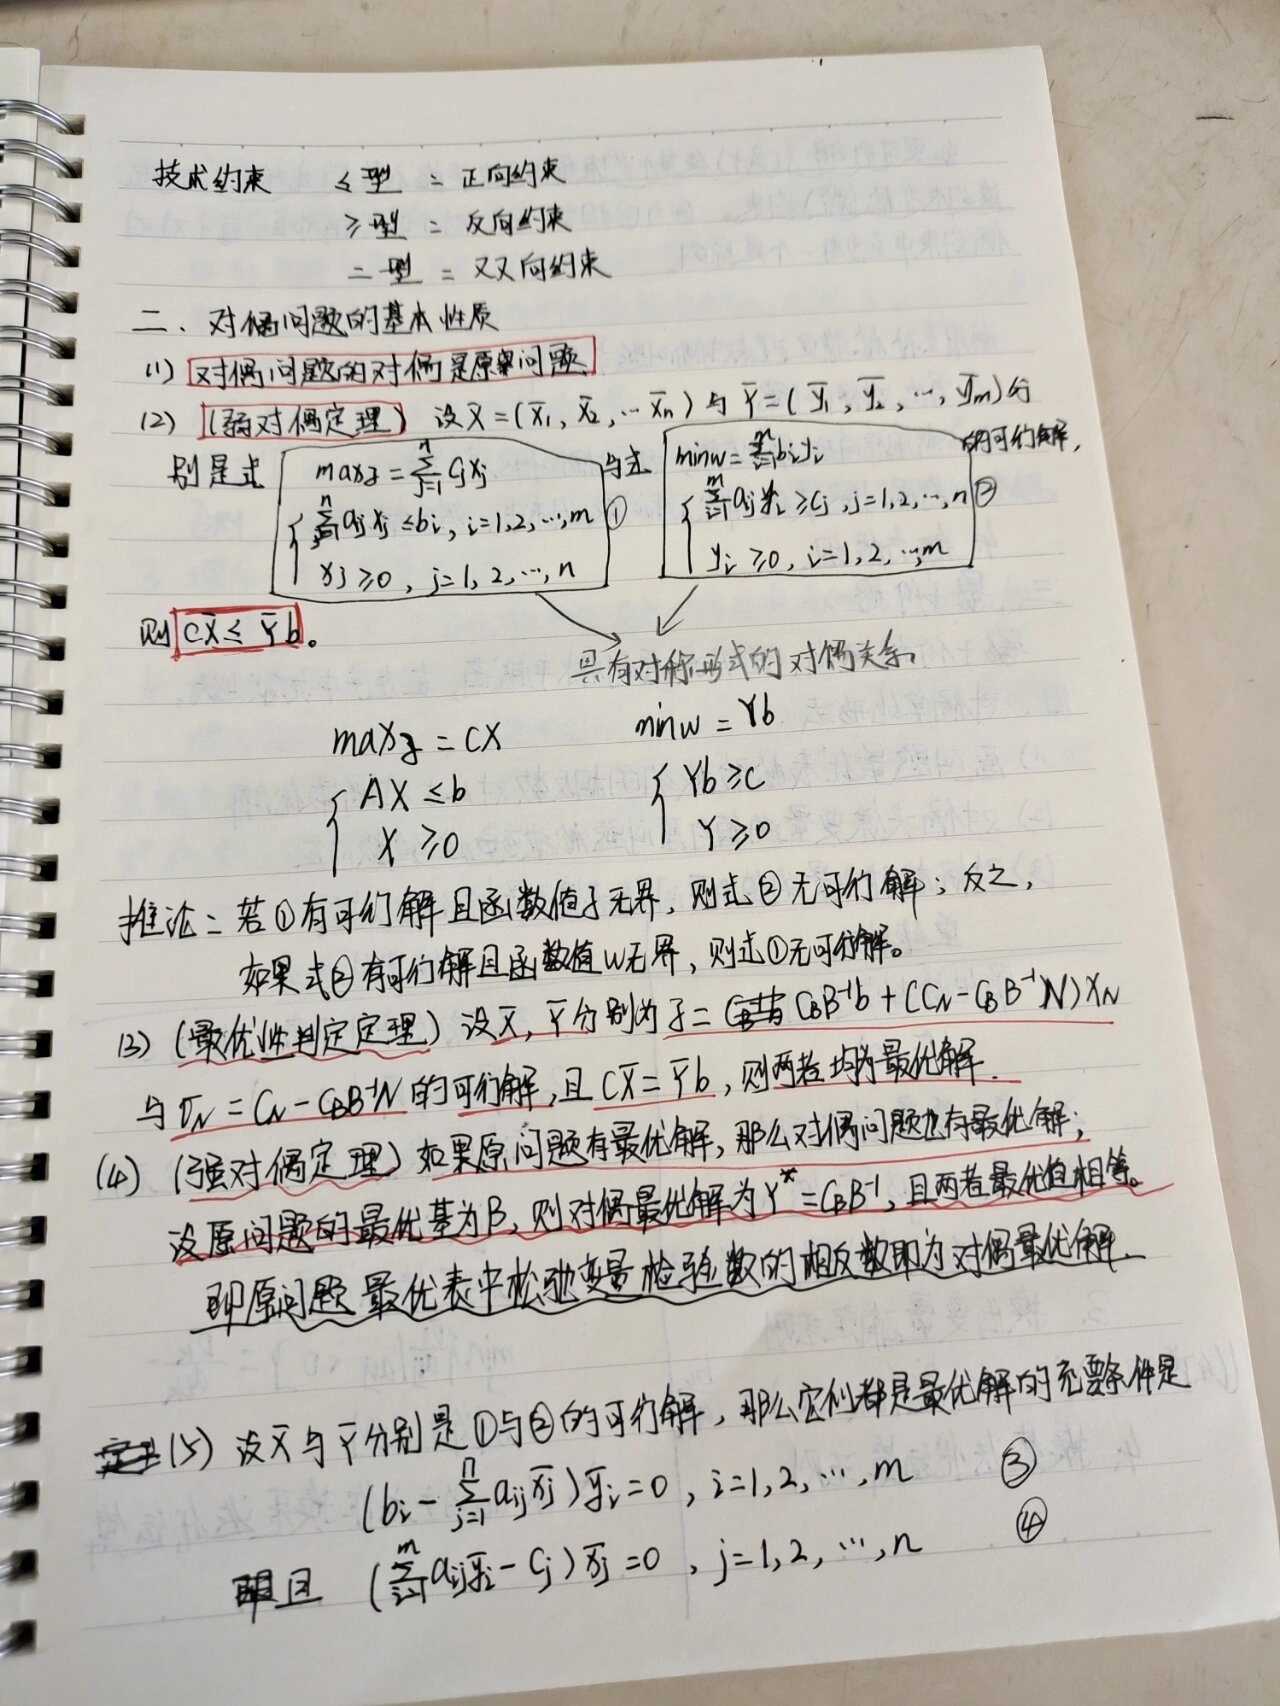 技术约束 ≤型 = 正向约束
≥型 = 反向约束
=型 = 双向约束
二、对偶问题的基本性质
(1) 对偶问题的对偶是原问题
(2) (弱对偶定理) 设X̄=(x̄₁, x̄₂, …x̄ₙ)与Ȳ=(ȳ₁, ȳ₂, …, ȳₘ)分
别是式 maxz=∑ⱼ₌₁ⁿcⱼxⱼ 与式 minw=∑ᵢ₌₁ᵐbᵢyᵢ 的可行解,
{∑ⱼ₌₁ⁿaᵢⱼxⱼ≤bᵢ, i=1,2,…,m ① {∑ᵢ₌₁ᵐaᵢⱼyᵢ≥cⱼ, j=1,2,…,n ②
xⱼ≥0, j=1,2,…,n yᵢ≥0, i=1,2,…,m
则 CX̄≤Ȳb。
具有对称形式的对偶关系
maxz=CX minw=Yb
{AX≤b {Yb≥C
X≥0 Y≥0
推论: 若①有可行解且函数值z无界, 则式②无可行解; 反之,
如果式②有可行解且函数值w无界, 则式①无可行解。
(3) (最优性判定定理) 设X̄, Ȳ分别为z= C_BB⁻¹b+(C_N-C_BB⁻¹N)X_N
与σ_N=C_N-C_BB⁻¹N的可行解, 且CX̄=Ȳb, 则两者均为最优解.
(4) (强对偶定理) 如果原问题有最优解, 那么对偶问题也有最优解;
设原问题的最优基为B, 则对偶最优解为Y*=C_BB⁻¹, 且两者最优值相等。
即原问题最优表中松弛变量检验数的相反数即为对偶最优解.
(5) 设X̄与Ȳ分别是①与②的可行解, 那么它们都是最优解的充要条件是
(bᵢ-∑ⱼ₌₁ⁿaᵢⱼx̄ⱼ)ȳᵢ=0, i=1,2,…,m ③
且 (∑ᵢ₌₁ᵐaᵢⱼȳᵢ-cⱼ)x̄ⱼ=0, j=1,2,…,n ④